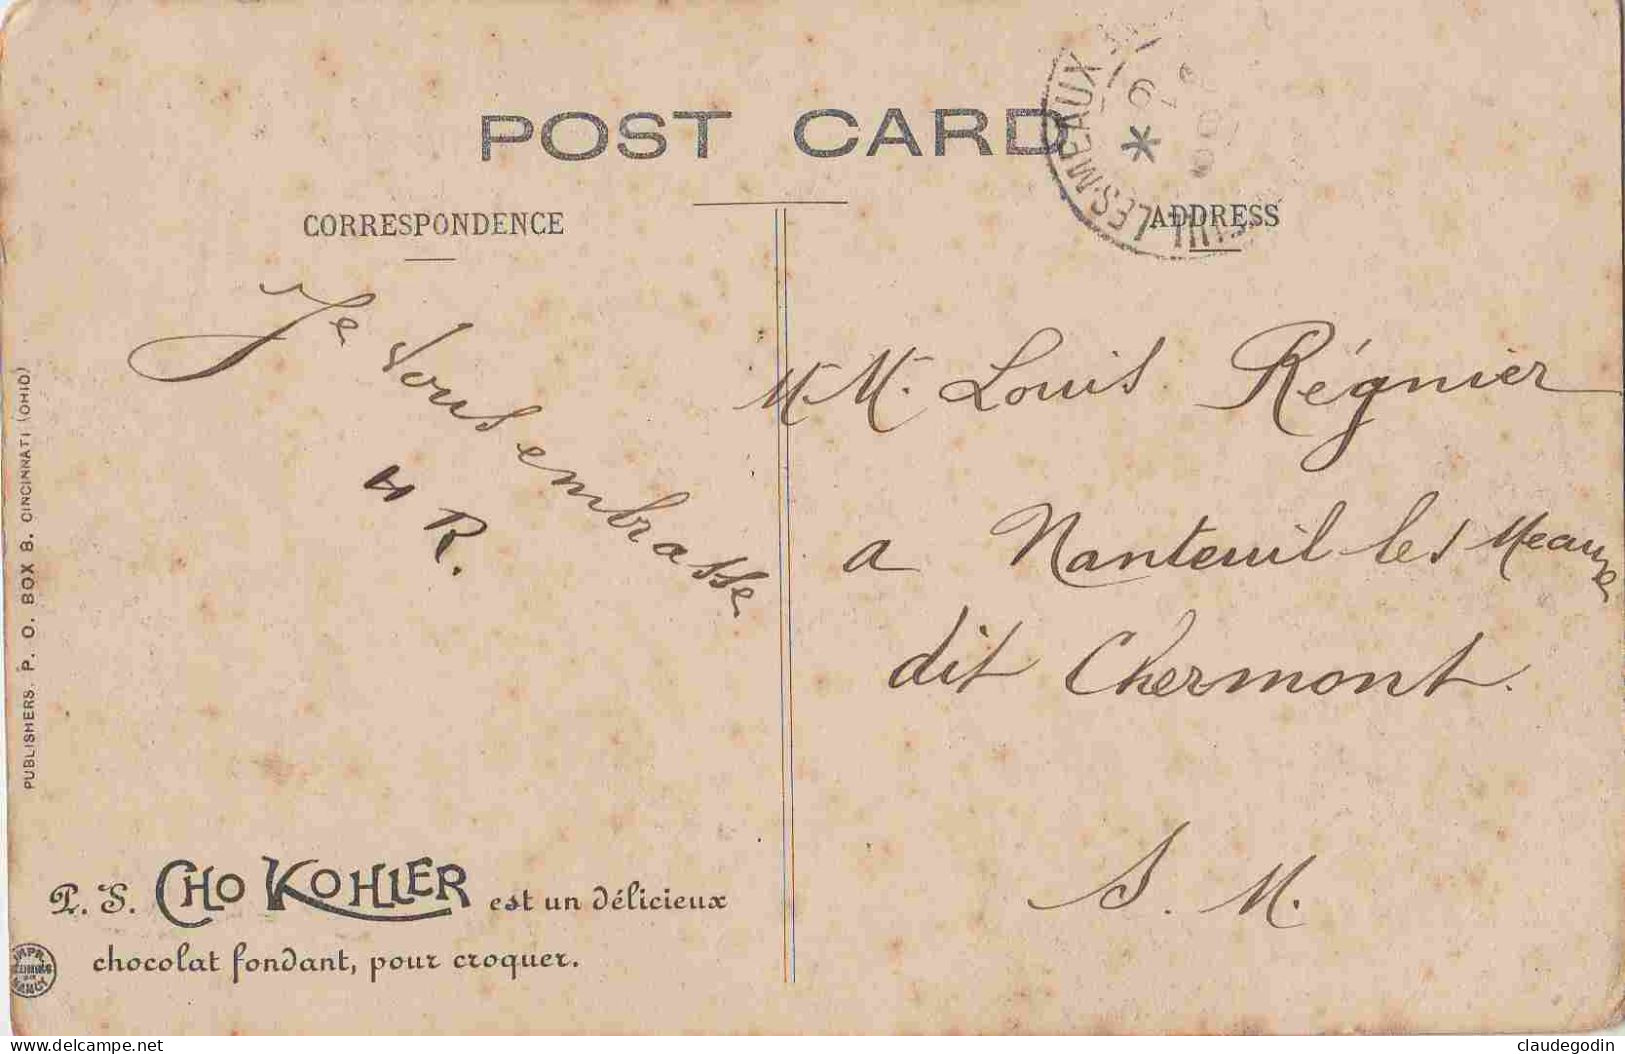 POST CARD
CORRESPONDENCE
ADDRESS
LES-MEAUX
Je vous embrasse
H R.
M. M. Louis Régnier
a Nanteuil les Meaux
dit Chermont.
S. M.
PUBLISHERS. P. O. BOX B. CINCINNATI (OHIO)
P. S. CHO KOHLER est un délicieux
chocolat fondant, pour croquer.
IMPR.
NANCY
delcampe.net
claudegodin